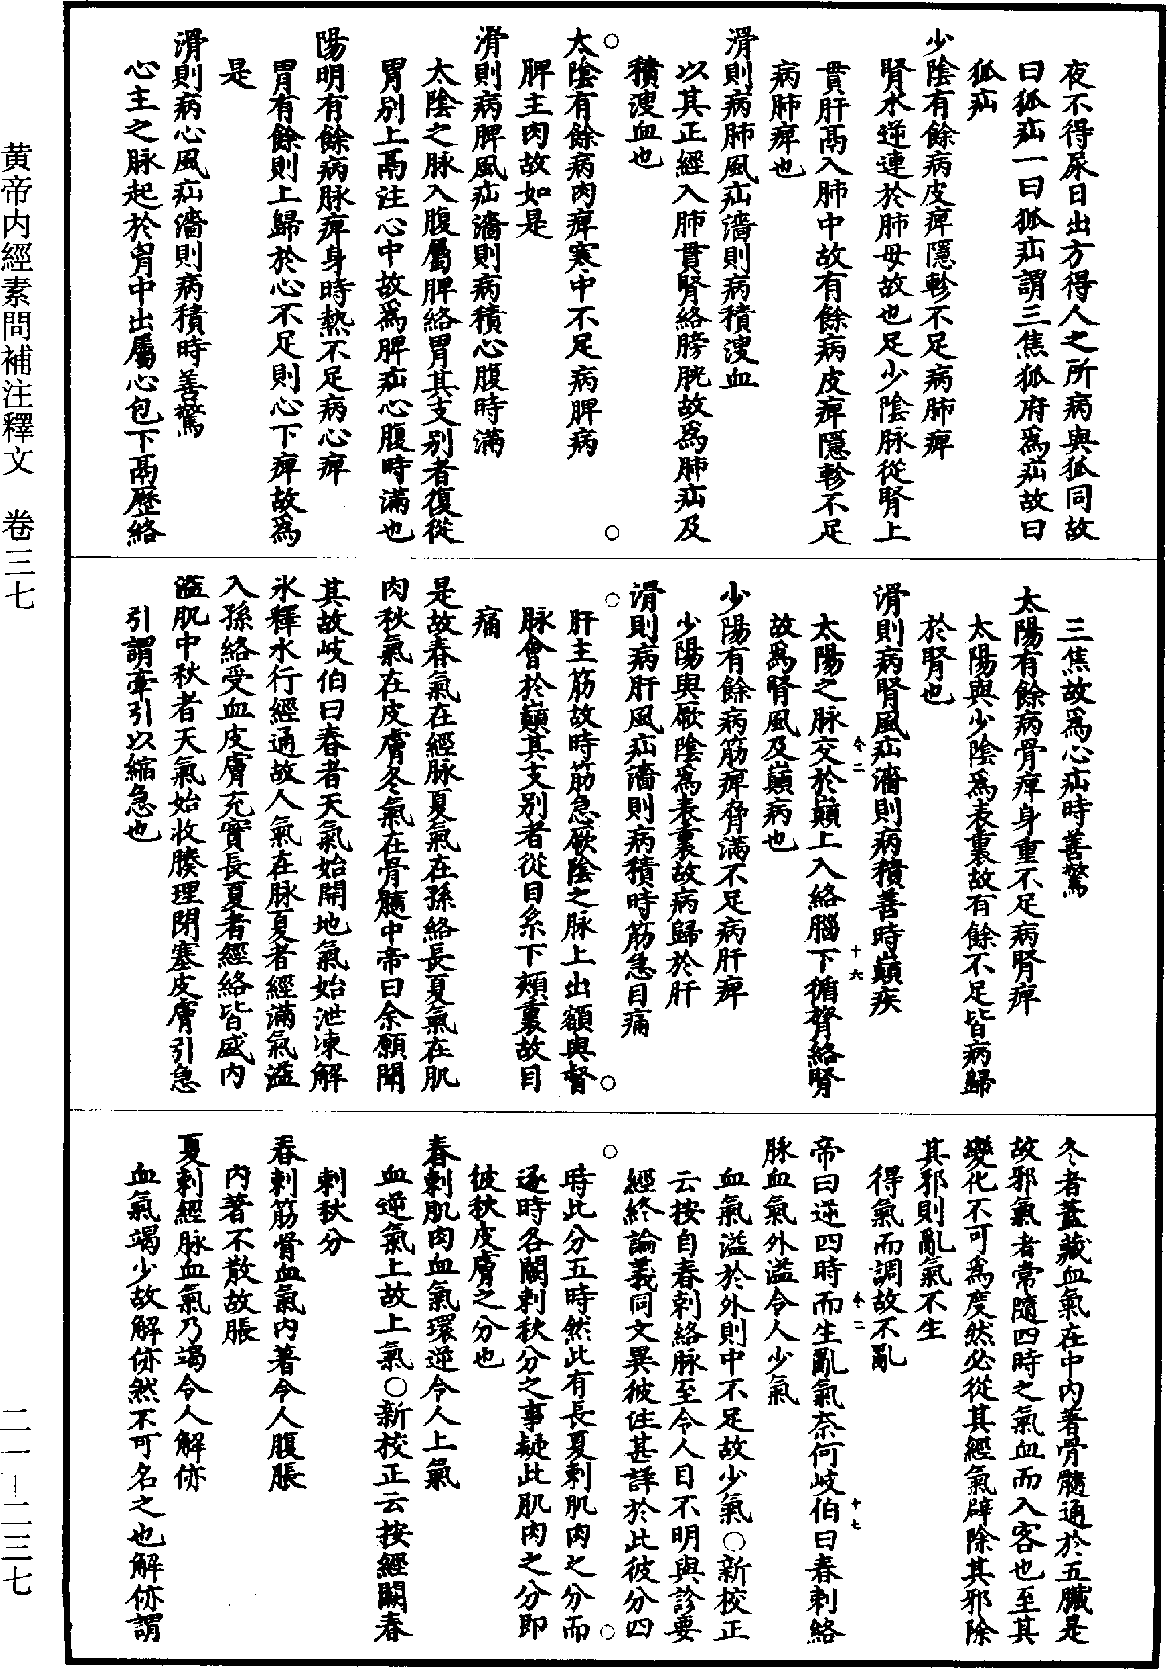 夜不得尿日出方得人之所病與狐同故
曰狐疝一曰狐疝謂三焦狐府爲疝故曰
狐疝
少陰有餘病皮痺隱軫不足病肺痺
腎水逆連於肺母故也足少陰脉從腎上
貫肝鬲入肺中故有餘病皮痺隱軫不足
病肺痺也
滑則病肺風疝濇則病積溲血
以其正經入肺貫腎絡膀胱故爲肺疝及
積溲血也
太陰有餘病肉痺寒中不足病脾病
脾主肉故如是
滑則病脾風疝濇則病積心腹時滿
太陰之脉入腹屬脾絡胃其支别者復從
胃别上鬲注心中故爲脾疝心腹時滿也
陽明有餘病脉痺身時熱不足病心痺
胃有餘則上歸於心不足則心下痺故爲
是
滑則病心風疝濇則病積時善驚
心主之脉起於胷中出屬心包下鬲歷絡
三焦故爲心疝時善驚
太陽有餘病骨痺身重不足病腎痺
太陽與少陰爲表裏故有餘不足皆病歸
於腎也
滑則病腎風疝濇則病積善時巔疾
太陽之脉交於巔上入絡腦下循膂絡腎
故爲腎風及巔病也
少陽有餘病筋痺脅滿不足病肝痺
少陽與厥陰爲表裏故病歸於肝
滑則病肝風疝濇則病積時筋急目痛
肝主筋故時筋急厥陰之脉上出額與督
脉會於巔其支别者從目系下頰裏故目
痛
是故春氣在經脉夏氣在孫絡長夏氣在肌
肉秋氣在皮膚冬氣在骨髓中帝曰余願聞
其故岐伯曰春者天氣始開地氣始泄凍解
氷釋水行經通故人氣在脉夏者經滿氣溢
入孫絡受血皮膚充實長夏者經絡皆盛内
溢肌中秋者天氣始收腠理閉塞皮膚引急
引謂牽引以縮急也
冬者蓋藏血氣在中内著骨髓通於五臟是
故邪氣者常隨四時之氣血而入客也至其
變化不可爲度然必從其經氣辟除其邪除
其邪則亂氣不生
得氣而調故不亂
帝曰逆四時而生亂氣奈何岐伯曰春刺絡
脉血氣外溢令人少氣
血氣溢於外則中不足故少氣○新校正
云按自春刺絡脉至令人目不明與診要
經終論義同文異彼注甚詳於此彼分四
時此分五時然此有長夏刺肌肉之分而
逐時各闕刺秋分之事疑此肌肉之分即
彼秋皮膚之分也
春刺肌肉血氣環逆令人上氣
血逆氣上故上氣○新校正云按經闕春
刺秋分
春刺筋骨血氣内著令人腹脹
内著不散故脹
夏刺經脉血氣乃竭令人解㑊
血氣竭少故解㑊然不可名之也解㑊謂
黄帝内經素問補注釋文　卷三七
二一—二三七